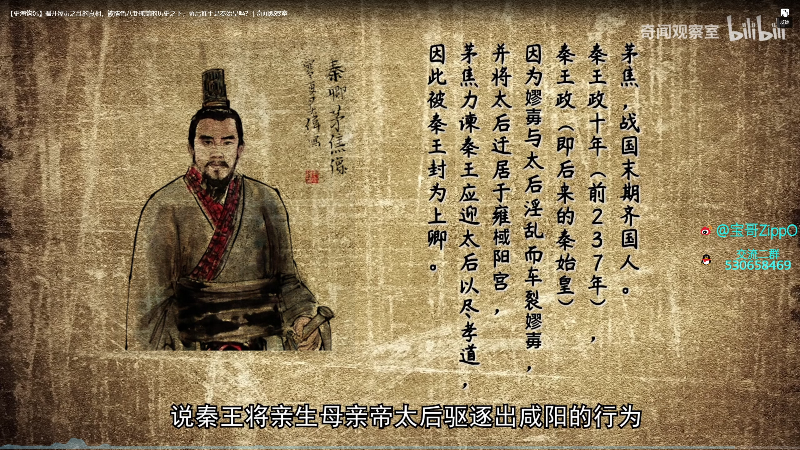 奇闻观察室 bilibili
茅焦，战国末期齐国人。
秦王政十年（前237年），
秦王政（即后来的秦始皇）
因为嫪毐与太后淫乱而车裂嫪毐，
并将太后迁居于雍棫阳宫，
茅焦力谏秦王应迎太后以尽孝道，
因此被秦王封为上卿。
秦卿茅焦像
@宝哥ZippO
交流二群
530658469
说秦王将亲生母亲帝太后驱逐出咸阳的行为